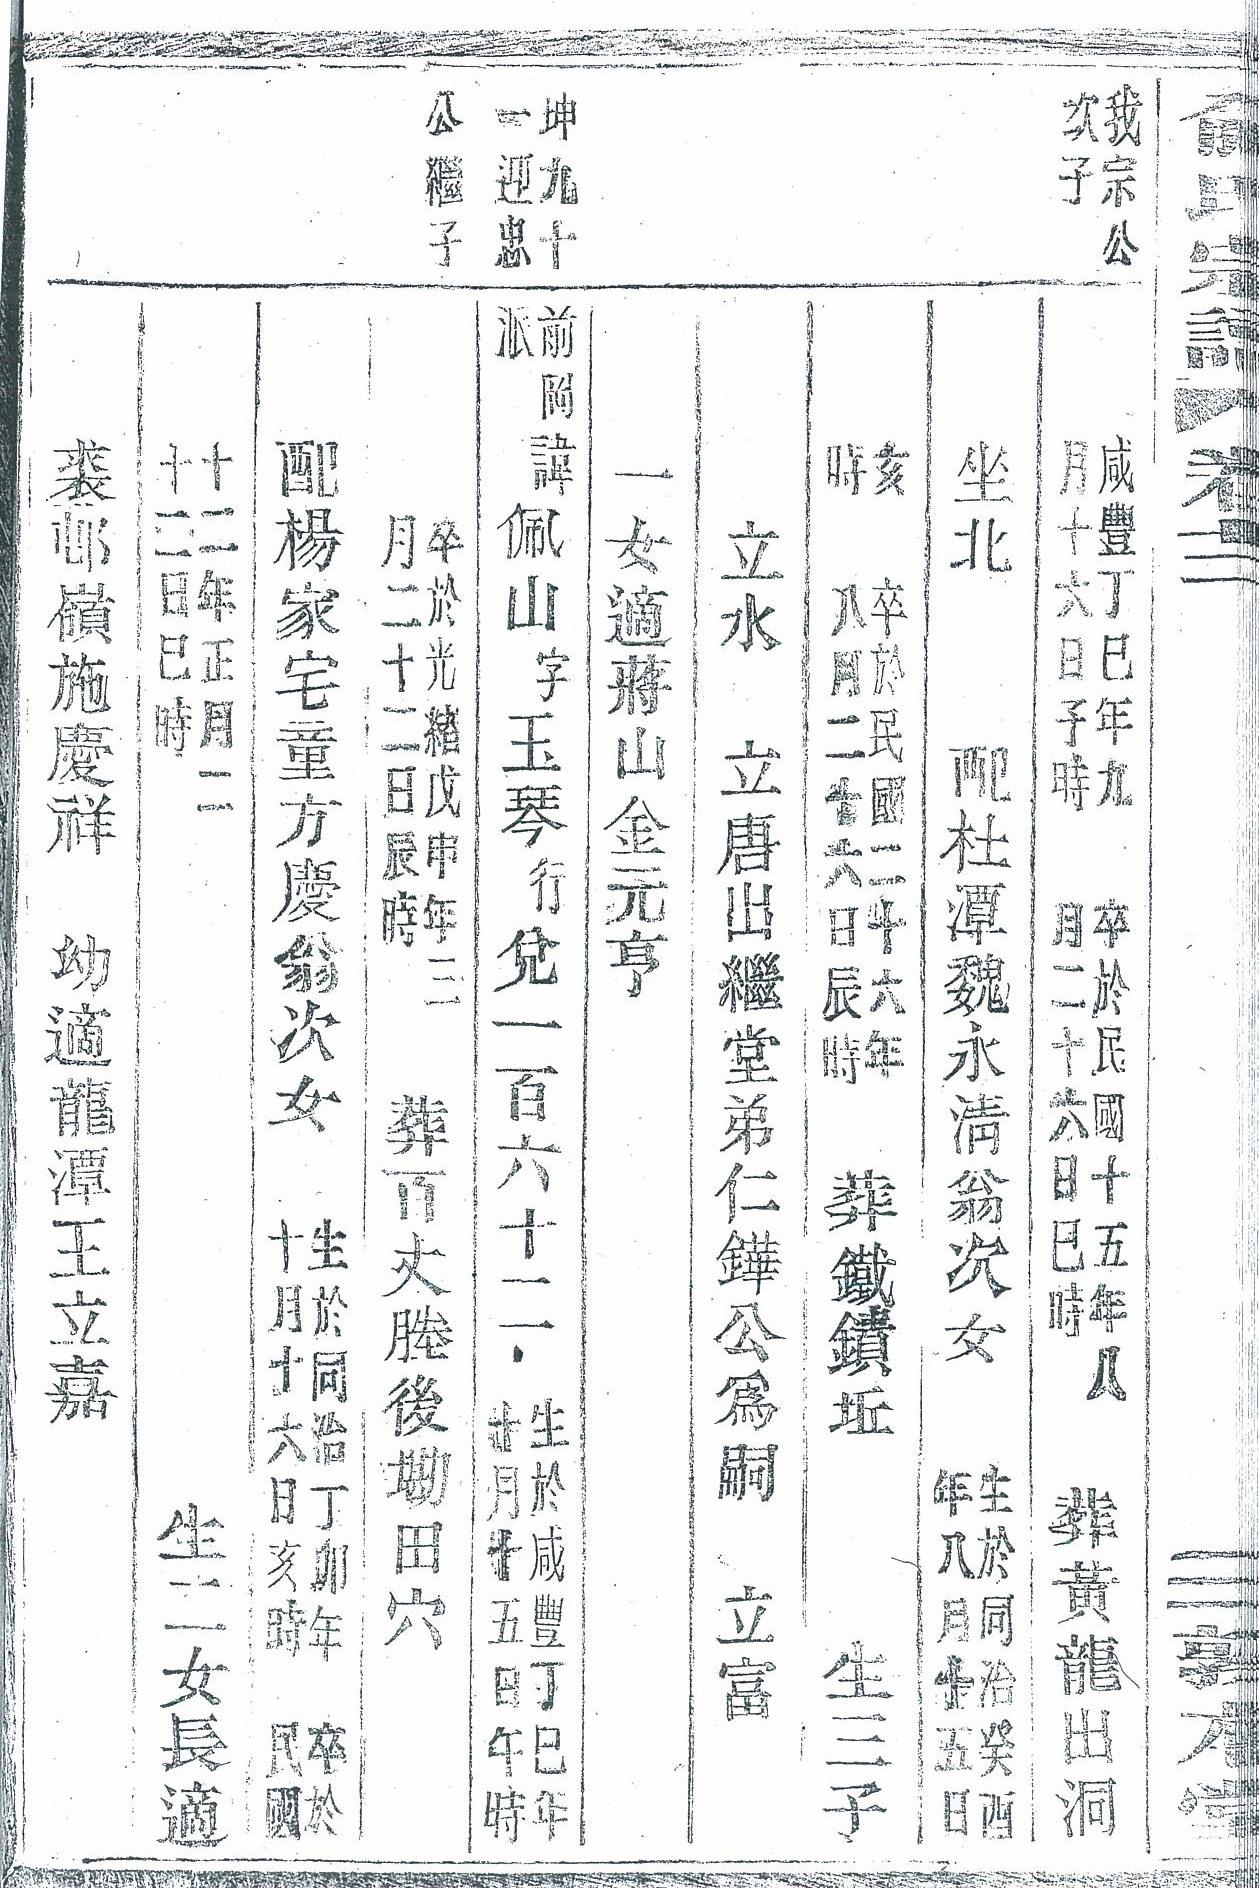 俞氏宗譜 卷二 敦本堂
我宗公
次子
咸豐丁巳年九
月十六日子時
卒於民國十五年八
月二十六日巳時
葬黃龍出洞
坐北 配杜潭魏永淸翁次女
生於同治癸酉
年八月廿五日
亥
時
卒於民國二十六年
八月二十六日辰時
葬鐵鐀坵 生三子
立水 立唐出繼堂弟仁鏵公爲嗣 立富
一女適蔣山金元亨
坤九十
一迎忠
公繼子
前岡
派
諱佩山字玉琴行兌一百六十二
生於咸豐丁巳年
廿月廿五日午時
卒於光緖戊申年三
月二十二日辰時
葬百丈塍後坳田穴
配楊家宅童方慶翁次女
生於同治丁卯年
十月十六日亥時
卒於
民國
十二年正月二
十二日巳時
生二女長適
裘邨嶺施慶祥 幼適龍潭王立嘉